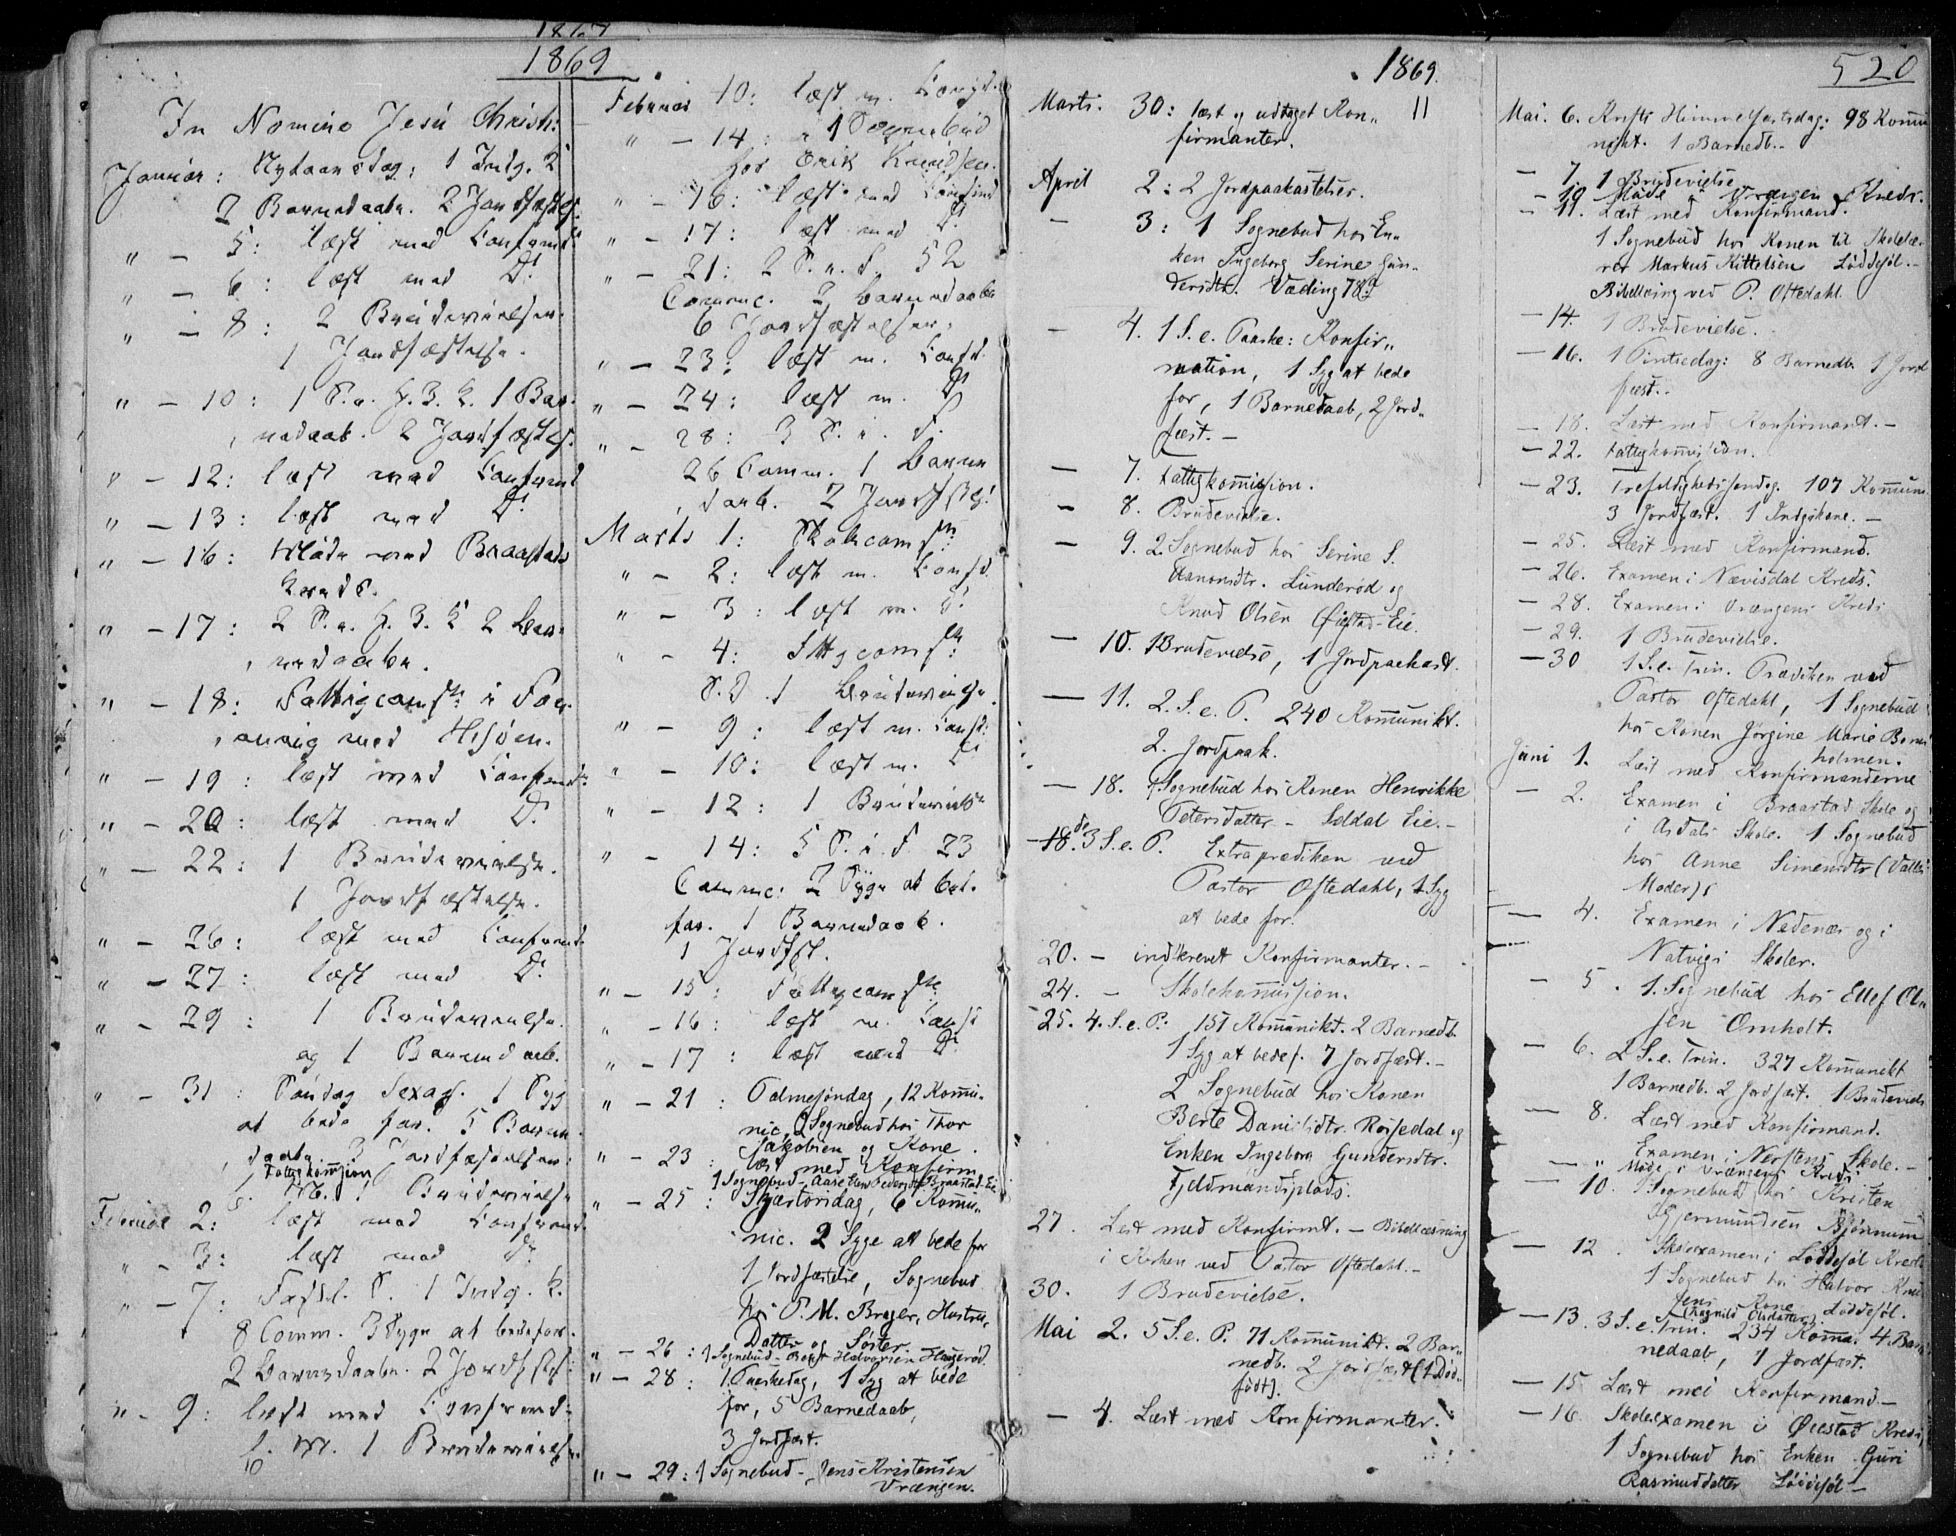 1869
In Nomine Jesu Christi:
Januar: Nytaarsdag: 1 Indg. K.
2 Barnedaabe. 2 Jordfæstels.
" - 5: læst med Confirmd.
" - 6: læst med Do
" - 8: 2 Brudevielser.
1 Jordfæstelse.
" - 10: 1 S. e. H. 3. K. 1 Bar-
nedaab. 2 Jordfæstels.
" - 12: læst med Confirmd
" - 13: læst med Do
" - 16: Møde med Braastads
Kreds.
" - 17: 2 S. e. H. 3. K. 2 Bar-
nedaabe.
" - 18: Fattigcomsn: i
med Hisøen.
" - 19: læst med Confirmd.
" - 20: læst med Do
" - 22: 1 Brudevielse.
1 Jordfæstelse.
" - 26: læst med Confirmd.
" - 27: læst med Do
" - 29: 1 Brudevielse.
og 1 Barnedaab.
" - 31: Søndag Sexag. 1 Syg
at bede for. 5 Barne-
daabe. 3 Jordfæstelser.
Fattigkommission
1 Brudevielse
Februar 2: læst med Confirmd.
" - 3: læst med Do
" - 7: Fastel. S. 1 Indg. K.
8 Comm. 3 Syge at bede for.
2 Barnedaabe. 2 Jordfst:
" - 9: læst med Confirmd.
1 Brudevielse
10
Februar 10: læst m. Confd.
" - 14: 1 Sognebud
hos Erik Knudsen.
" - 16: læst med Confirmd
" - 17: læst med Do
" - 21: 2 S. i. F. 52
Commc. 2 Barnedaabe
6 Jordfæstelser.
" - 23: læst m. Confd.
" - 24: læst m. Do
" - 28: 3 S. i. F.
26 Comm. 1 Barne-
daab. 2 Jordfst:
Marts 1: Skolecomsn:
" - 2: læst m. Confd.
" - 3: læst m. Do
" - 4: Fttgcomsn:
S. D. 1 Brudevielse
" - 9: læst m. Confd:
" - 10: læst m. Do
" - 12: 1 Brudevielse
" - 14: 5 S. i. F 23
Commc: 2 Syge at bed.
for. 1 Barnedaab.
1 Jordfst.
" - 15: Fattigcomsn:
" - 16: læst m. Confd
" - 17: læst med Do
" - 21: Palmesøndag, 12 Kommu-
nic. 2 Sognebud hos Thor
Jakobsen og Kone.
" - 23: læst med Konfirm.
1 Sognebud - Aase Pedersdtr Braastad-Eie
" - 25: Skjærtorsdag, 6 Kommu-
nic. 2 Syge at bede for
1 Jordfæstelse, Sognebud
hos P. M. Breger, Hustru,
Datter og Søster
" - 26: 1 Sognebud - Halvorsen
" - 28: 1. Paaskedag, 1 Syg at bede
for, 5 Barnedaab,
3 Jordfæst.
" - 29: 1 Sognebud - Jens Kristensen
Vrængen.
1869.
Marts. 30: læst og udtaget Kon- 11
firmanter.
April 2: 2 Jordpaakastelser.
- 3: 1 Sognebud hos En-
ken Ingeborg Serine Gun-
dersdtr. Væding 78 9
- 4. 1 S. e. Paaske: Konfir-
mation, 1 Syg at bede
for, 1 Barnedaab, 2 Jord-
fæst. -
- 7. Fattigkommission.
- 8. Brudevielse.
- 9. 2 Sognebud hos Serine S.
Aanonsdtr. Lunderød og
Knud Olsen Øiestad-Eie.
- 10. 1 Brudevielse, 1 Jordpaakast.
- 11. 2. S. e. P. 240 Kommunikt.
2. Jordpaak.
- 18. 1 Sognebud hos Konen Henrikke
Petersdatter - Seldal Eie. -
- 18de. 3 S. e. P. Extraprædiken ved
Pastor Oftedahl, 1 Syg
at bede for.
20. - indskrevet Konfirmanter. -
24. - Skolekommission.
25. 4. S. e. P. 151 Kommunikt. 2 Barnedb.
1 Syg at bede f. 7 Jordfæst. -
2 Sognebud hos Konen
Berte Danielsdtr. Røisedal og
Enken Ingeborg Gundersdtr.
Fjeldmandsplads.
27. Læst med Konfirmt. - Bibellæsning
i Kirken ved Pastor Oftedahl. -
30. 1 Brudevielse.
Mai 2. 5 S. e. P. 71 Kommunikt. 2 Bar-
nedb. 2 Jordfæst (1 Død-
født).
- 4. Læst med Konfirmanter.
520
Mai. 6. Kristi Himmelfartsdag: 98 Kommu
nikt. 1 Barnedb. -
- 7. 1 Brudevielse
- 10 Møde i Vrængen Kreds.
- 11. Læst med Konfirmand.
1 Sognebud hos Konen til Skolelæ-
rer Markus Kittelsen Løddesøl. -
Bibellæsning ved P. Oftedahl.
- 14. 1 Brudevielse.
- 16. 1 Pintsedag: 8 Barnedb. 1 Jord
fæst. -
- 18. Læst med Konfirmant. -
- 22. Fattigkommission.
- 23. Trefoldighedssøndag. 107 Kommun.
3 Jordfæst. 1 Indgskone. -
- 25. Læst med Konfirmand.
- 26. Examen i Nævisdal Kreds.
- 28. Examen i Vrængens Kreds
- 29. 1 Brudevielse.
- 30 1 S. e. Trin. Prædiken ved
Pastor Oftedahl, 1 Sognebud
hos Konen Jørgine Marie
holmen.
Juni 1. Læst med Konfirmanderne
- 2. Examen i Braastad Skole og
i Asdals Skole. 1 Sognebud
hos Anne Simensdtr
Moder)
- 4. Examen i Nedenæs og i
Natvigs Skoler.
- 5. 1. Sognebud hos Ellef Ol-
sen Omholt.
- 6. 2 S. e. Trin. 327 Kommunikt
1 Barnedb. 2 Jordfæst. 1 Brudeviels
- 8. Læst med Konfirmand.
Examen i Nerstens Skole. -
- " Møde i Vrængens Kreds
- 10. 1 Sognebud hos Kristen
Gjermundsen Bjønnum
- 12. Skoleexamen i Løddesøl Kreds
1 Sognebud hos Halvor Knu
sens Kone Løddesøl.
Ragnild Olsdatter
- 13. 3 S. e. Trin. 234 Komm. 4 Bar
nedaab, 1 Jordfæst.
- 15 Læst med Konfirmand -
- 16. Skoleexamen i Øiestad Kreds,
1 Sognebud hos Enken Guri
Rasmusdatter Løddesøl -